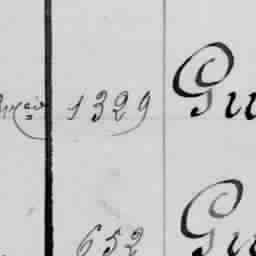 1329 Gu
652 Gu